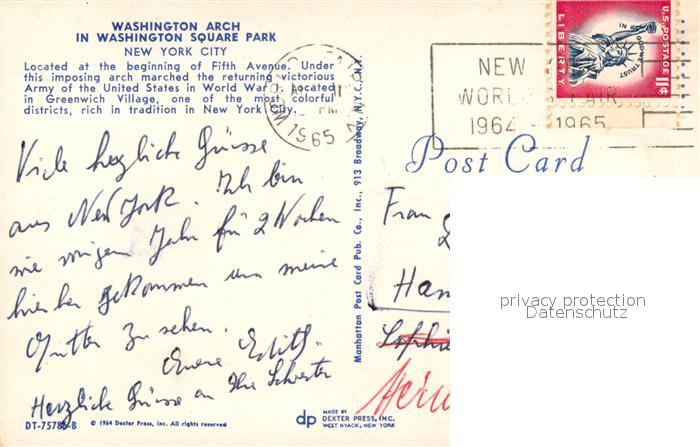 WASHINGTON ARCH
IN WASHINGTON SQUARE PARK
NEW YORK CITY
Located at the beginning of Fifth Avenue. Under
this imposing arch marched the returning victorious
Army of the United States in World War I. Located
in Greenwich Village, one of the most colorful
districts, rich in tradition in New York City.
Viele herzliche Grüsse
aus New York. Ich bin
wie vorigen Jahr für 2 Wochen
hierher gekommen um meine
Mutter zu sehen.
Eure Edith.
Herzliche Grüsse an Ihre Schwester
DT-75786-B
© 1964 Dexter Press, Inc. All rights reserved
dp
MADE BY
DEXTER PRESS, INC.
WEST NYACK, NEW YORK
Manhattan Post Card Pub. Co., Inc., 913 Broadway, N.Y.C., N.Y.
PM
1965
NEW
WORLD FAIR
1964 - 1965
U.S. POSTAGE
11¢
LIBERTY
IN GOD WE TRUST
Post Card
Frau
Han
privacy protection
Datenschutz